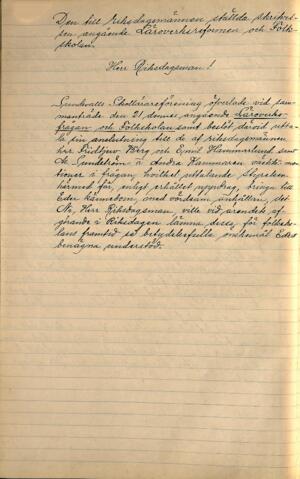 Den till riksdagsmännen ställda skrivel-
sen angående Läroverksreformen och Folk-
skolan.
Herr Riksdagsman!
Sundsvalls Skollärareförening överlade vid sam-
manträde den 21 dennes angående Läroverks-
frågan och Folkskolan samt beslöt därvid utta-
la sin anslutning till de af riksdagsmännen
hrr Fridtjuv Berg och Emil Hammarlund samt
A. Sundström i Andra Kammaren väckta mo-
tioner i frågan, hvilket uttalande Styrelsen
härmed får, enligt erhållet uppdrag, bringa till
Eder kännedom, med vördsam anhållan, det
Ni, Herr Riksdagsman ville vid ärendets af-
görande i Riksdagen lämna dessa, för folksko-
lans framtid så betydelsefulla önskemål Edert
benägna understöd.